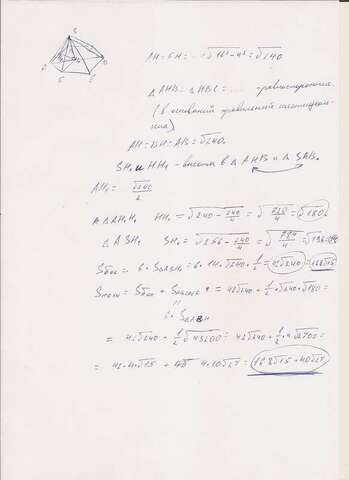 S
A
Б
С
D
H
AH = БH = ... √16² - 4² = √240
△ AHB = △ HBC = ... - равносторонние
(в основании правильный шестиугольник)
AH = BH = AB = √240.
SH₁ и HH₁ - высоты в △ AHB и △ SAB.
AH₁ = √240 / 2
△ AH₁H HH₁ = √240 - 240/4 = √720/4 = √180.
△ ASH₁ SH₁ = √256 - 240/4 = √784/4 = √196 = 14
Sбок. = 6 · SASB = 6 · 14 · √240 · 1/2 = 42√240 = 168√15
Sполн = Sбок + Sоснов = 42√240 + 1/2 · √240 · √180 =
6 · SAHB
= 42√240 + 1/2 √43200 = 42√240 + 1/2 · 4√2700 =
= 42 · 4√15 + 4·10√27 = 168√15 + 40√27